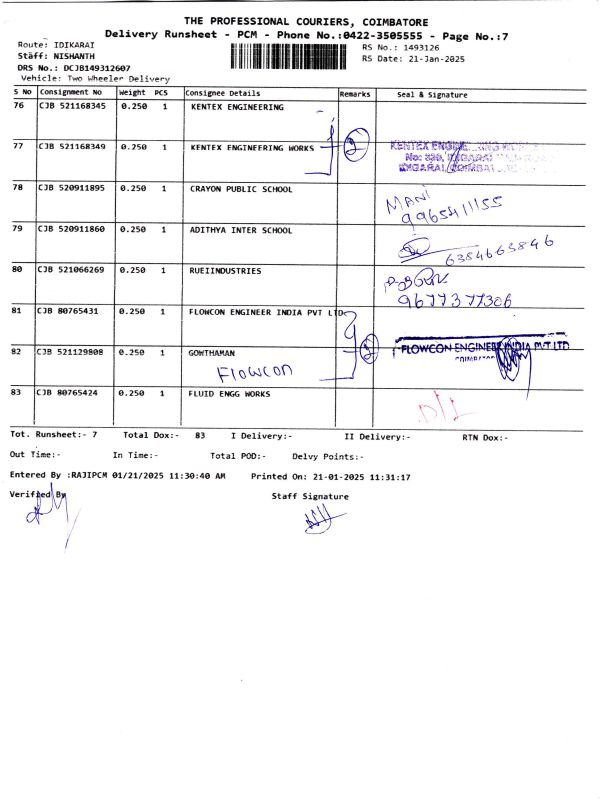 THE PROFESSIONAL COURIERS, COIMBATORE
Delivery Runsheet - PCM - Phone No.:0422-3505555 - Page No.:7
Route: IDIKARAI
Staff: NISHANTH
DRS No.: DCJB149312607
Vehicle: Two Wheeler Delivery
RS No.: 1493126
RS Date: 21-Jan-2025
S No Consignment No Weight PCS Consignee Details Remarks Seal & Signature
76 CJB 521168345 0.250 1 KENTEX ENGINEERING
77 CJB 521168349 0.250 1 KENTEX ENGINEERING WORKS 2
78 CJB 520911895 0.250 1 CRAYON PUBLIC SCHOOL MANI
9965411155
79 CJB 520911860 0.250 1 ADITHYA INTER SCHOOL
6384663846
80 CJB 521066269 0.250 1 RUEIINDUSTRIES
9677377306
81 CJB 80765431 0.250 1 FLOWCON ENGINEER INDIA PVT LTD
82 CJB 521129808 0.250 1 GOWTHAMAN 2 FLOWCON ENGINEER INDIA PVT LTD
Flowcon COIMBATORE
83 CJB 80765424 0.250 1 FLUID ENGG WORKS D/L
Tot. Runsheet:- 7 Total Dox:- 83 I Delivery:- II Delivery:- RTN Dox:-
Out Time:- In Time:- Total POD:- Delvy Points:-
Entered By :RAJIPCM 01/21/2025 11:30:40 AM Printed On: 21-01-2025 11:31:17
Verified By Staff Signature